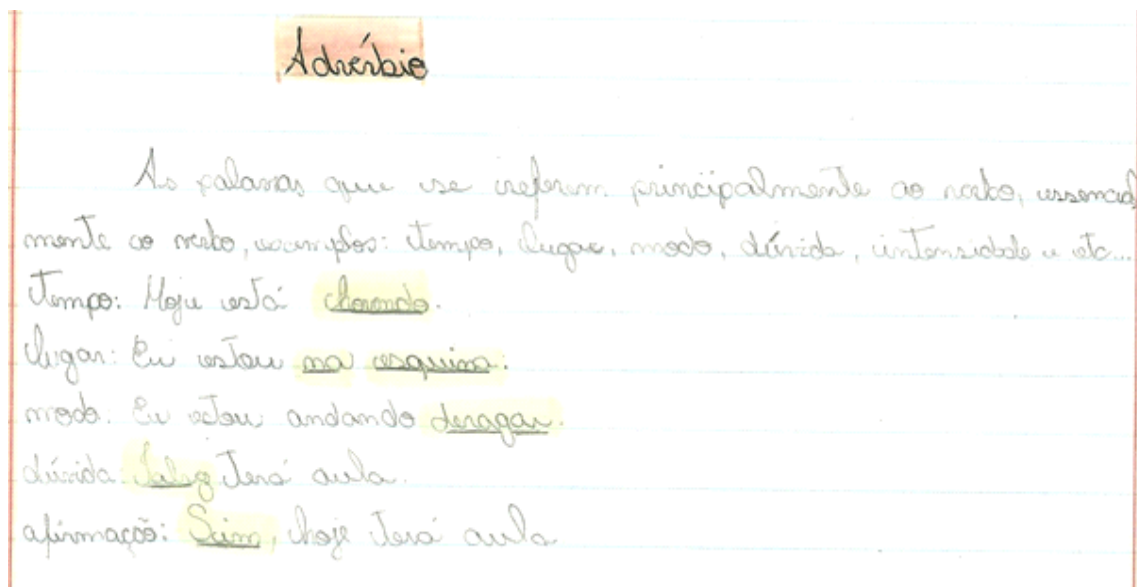 Advérbio
As palavras que se referem principalmente ao verbo, essencial
mente ao verbo, exemplos: tempo, lugar, modo, dúvida, intensidade e etc...
Tempo: Hoje está chovendo.
lugar: Eu estou na esquina.
modo: Eu estou andando devagar.
dúvida: Talvez Terá aula.
afirmação: Sim, hoje Terá aula